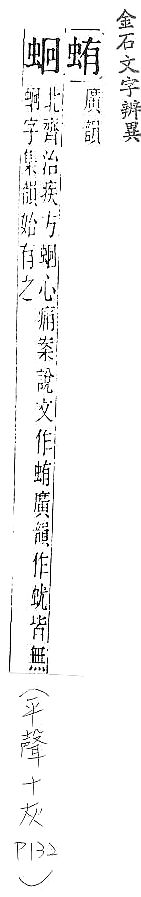 金石文字辨異
蛕廣韻
蛔北齊治疾方蛔心痛案說文作蛕廣韻作蚘皆無
蛔字集韻始有之
(平聲十灰P132)